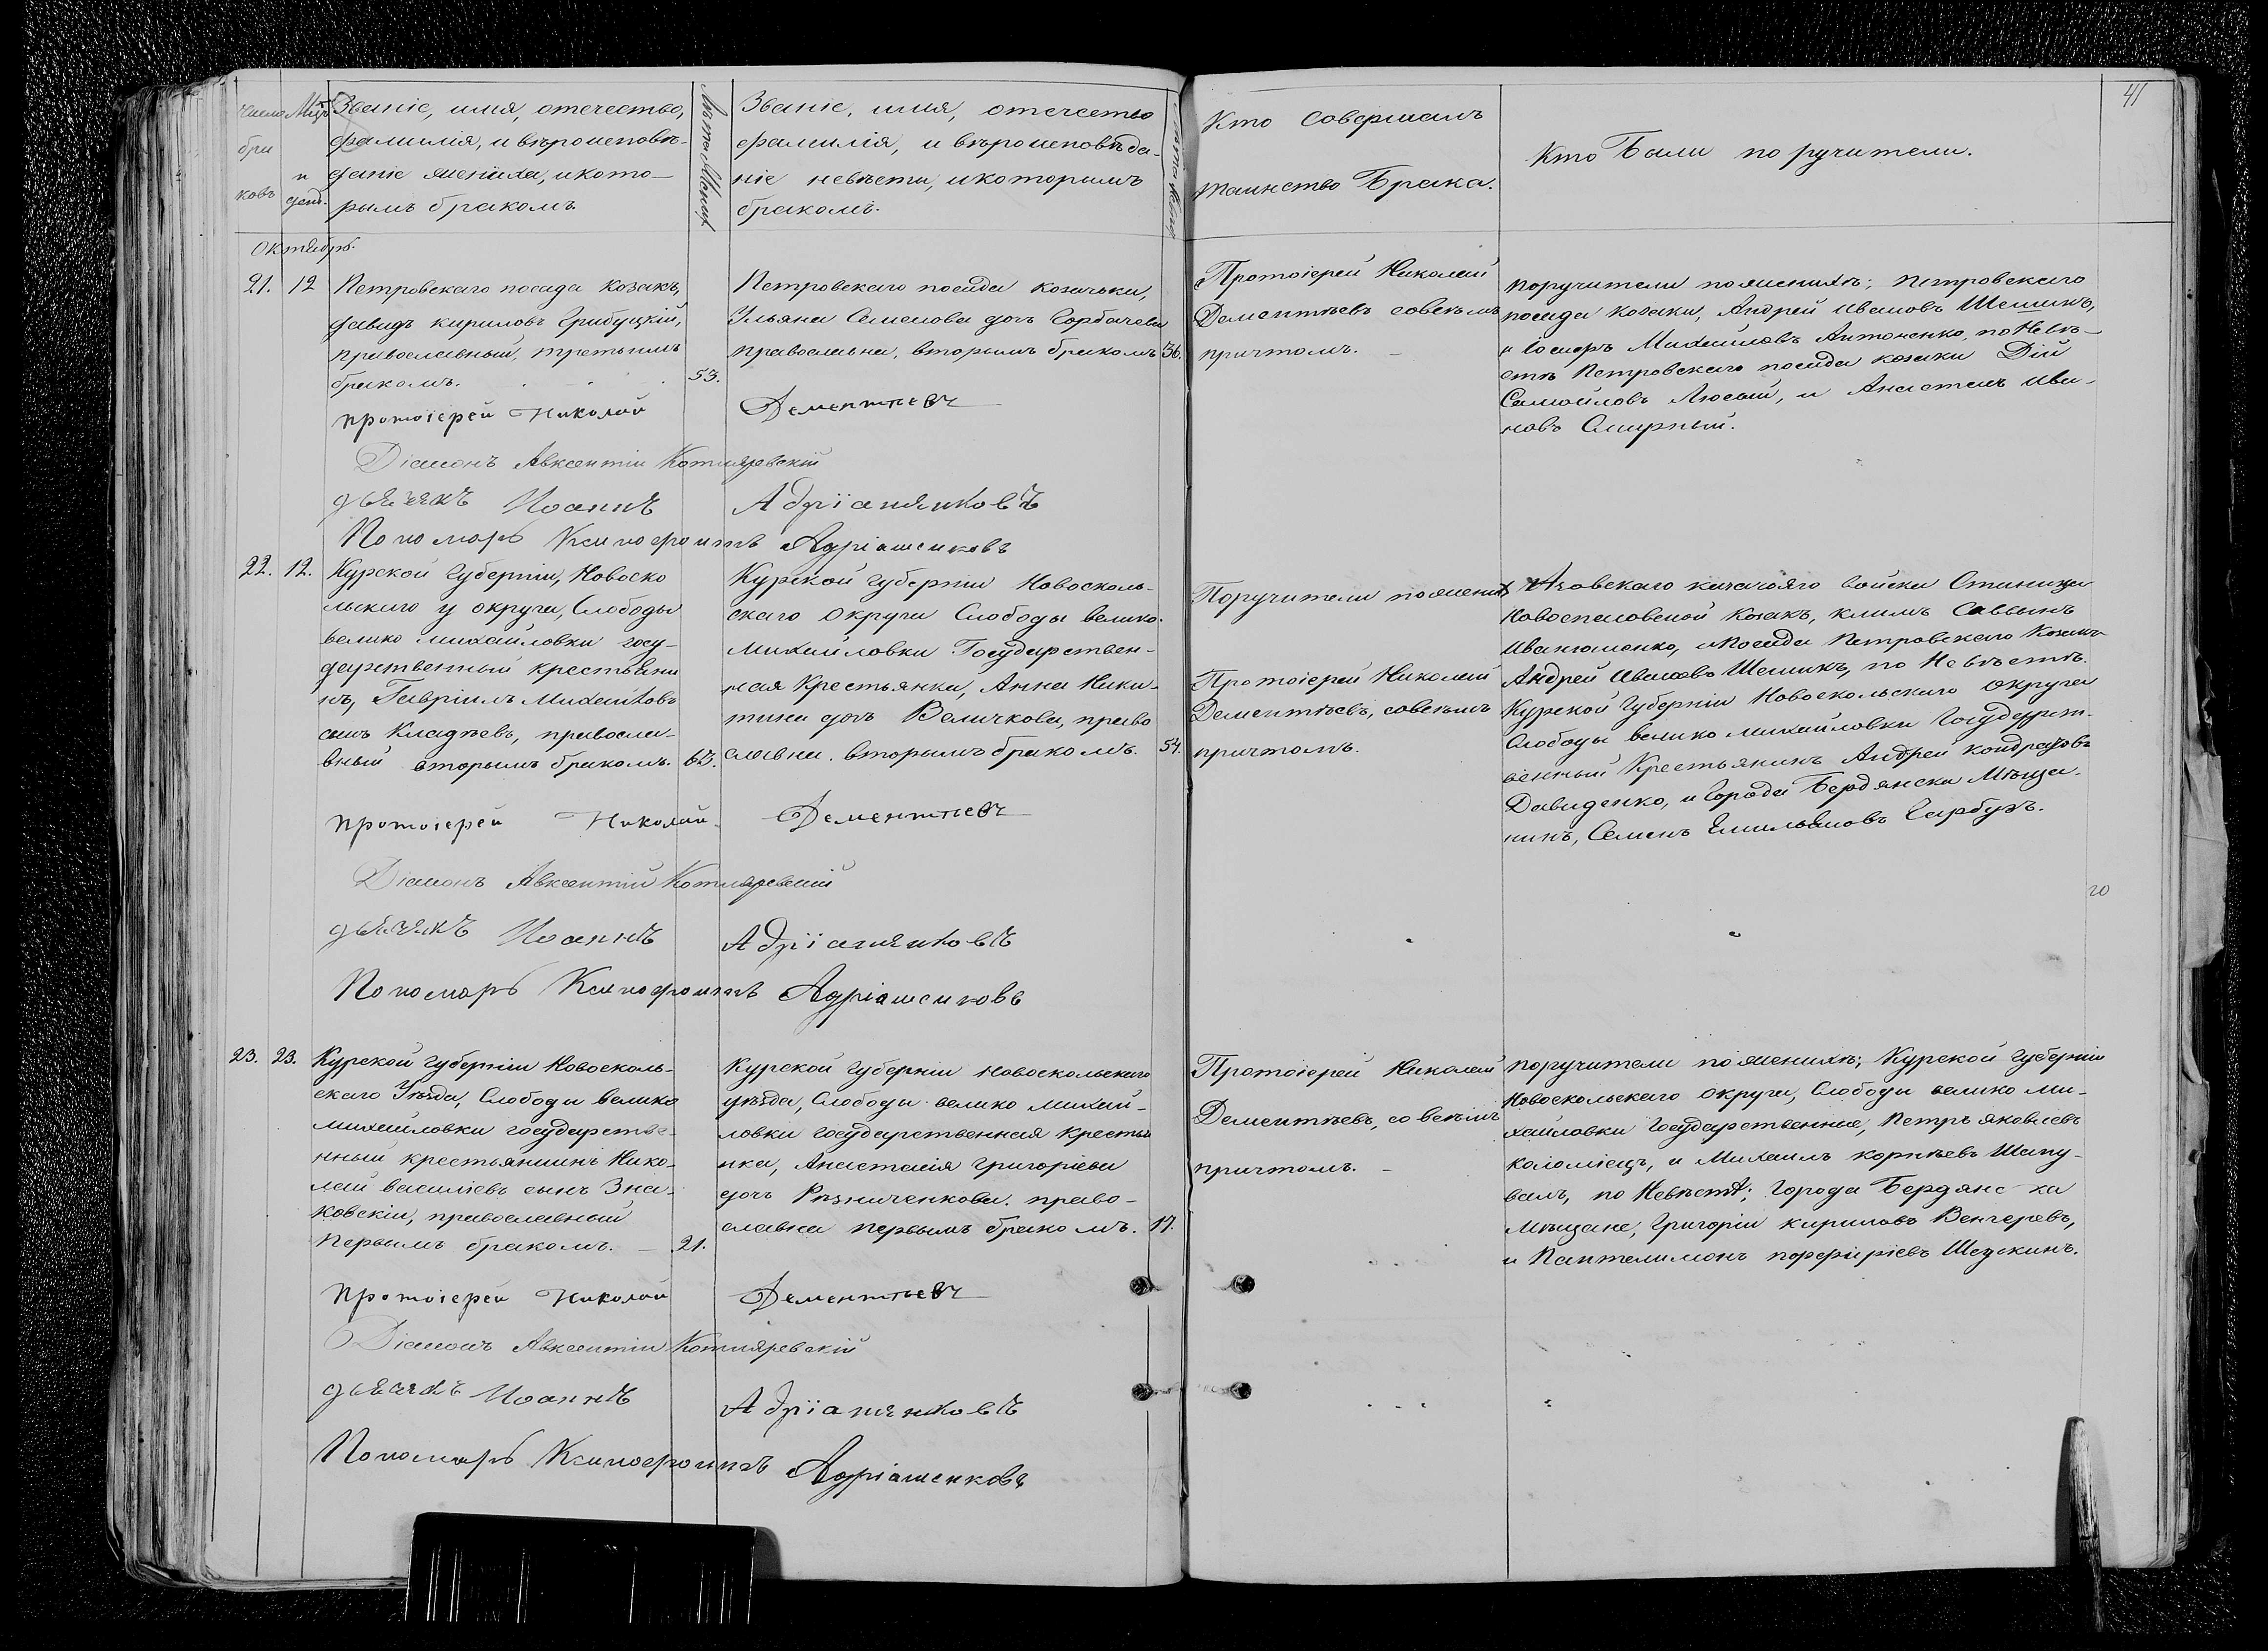 41
Число бра ковъ
Мѣц. и день.
Званіе, имя, отечество,
фамилія, и вѣроисповѣ-
даніе жениха, и кото-
рымъ бракомъ.
Лѣта Жених
Званіе, имя, отечество
фамилія, и вѣроисповѣда-
ніе невѣсти, и которымъ
бракомъ.
Кто совершалъ
таинство Брака.
Кто Были поручители.
Октябрь.
21. 12
Петровскаго посада козакъ,
давидъ кириловъ Грибуцкій,
православный, третьимъ
бракомъ. 53.
Петровскаго посада козачька,
Ульяна Семенова дочь Горбачева
православна, вторымъ бракомъ 36.
Протоіерей Николай
Дементѣевъ совсѣмъ
причтомъ.
поручители по женихѣ; Петровскаго
посада козаки, Андрей Ивановъ Шешикъ,
и Іосифъ Михайловъ Антоненко, по Невѣ-
стѣ Петровскаго посада козаки Дій
Самойловъ Люсый, и Анастасъ Ива-
новъ Смирный.
протоіерей Николай Дементѣевъ
Діаконъ Авксентій Котляревскій
дьячекъ Иоаннъ Адріаненковъ
Пономарь Ксинофонтъ Адріяшенковъ
22. 12.
Курской Губерніи, Новоско
льскаго у округа, Слободы
велико михайловки госу-
дарственный крестьяни
нъ, Гавріилъ Михайловъ
сынъ Кладѣевъ, правосла-
вный вторымъ бракомъ. 63.
Курской губерніи Новосколь-
скаго Округа Слободы велико-
михайловки Государствен-
ная Крестьянка, Анна Ники-
тина дочь Величкова, право
славна. вторымъ бракомъ. 54.
Поручители по жених
Протоіерей Николай
Дементѣевъ, совсѣмъ
причтомъ.
Азовскаго казачьяго войска Станицы
Новоспасовской Козакъ, климъ Саввынъ
Иванюшенко, и Посада Петровскаго Козакъ
Андрей Ивановъ Шешикъ, по Невѣстѣ.
Курской Губерніи Новоскольскаго округа
Слободы велико михайловки Государст-
венный Крестьянинъ Андрей кондратовъ
Давиденко, и Города Бердянска Мѣща-
нинъ, Семенъ Емильяновъ Гарбузъ.
20
протоіерей Николай Дементѣевъ
Діаконъ Авксентій Котляревскій
дьячекъ Иоаннъ Адріаненковъ
Пономарь Ксинофонтъ Адріяшенковъ
23. 23.
Курской губерніи Новосколь-
скаго Уѣзда, Слободы велико
михайловки государстве-
нный крестьянинъ Нико-
лай василіевъ сынъ Зна-
ковскіи, православный
первымъ бракомъ. — 21.
Курской губерніи Новоскольскаго
уѣзда, Слободы велико михай-
ловки государственная крестья
нка, Анастасія григоріева
дочь Рѣзниченкова. право-
славна первымъ бракомъ. 17.
Протоіерей Николай
Дементѣевъ, со всѣмъ
причтомъ. -
поручители по женихѣ; Курской губерніи
Новоскольскаго округа, Слободы велико ми-
хайловки Государственные, Петръ яковлевъ
коломіецъ, и Михаилъ корнѣевъ Шапу-
валъ, по Невѣстѣ; города Бердянс ка
Мѣщане, григоріи кириловъ Венгеревъ,
и Пантелимонъ порфиріевъ Шедскинъ.
протоіерей Николай Дементѣевъ
Діаконъ Авксентіи Котляревскій
дьячекъ Иоаннъ Адріаненковъ
Пономарь Ксинофонтъ Адріяшенковъ